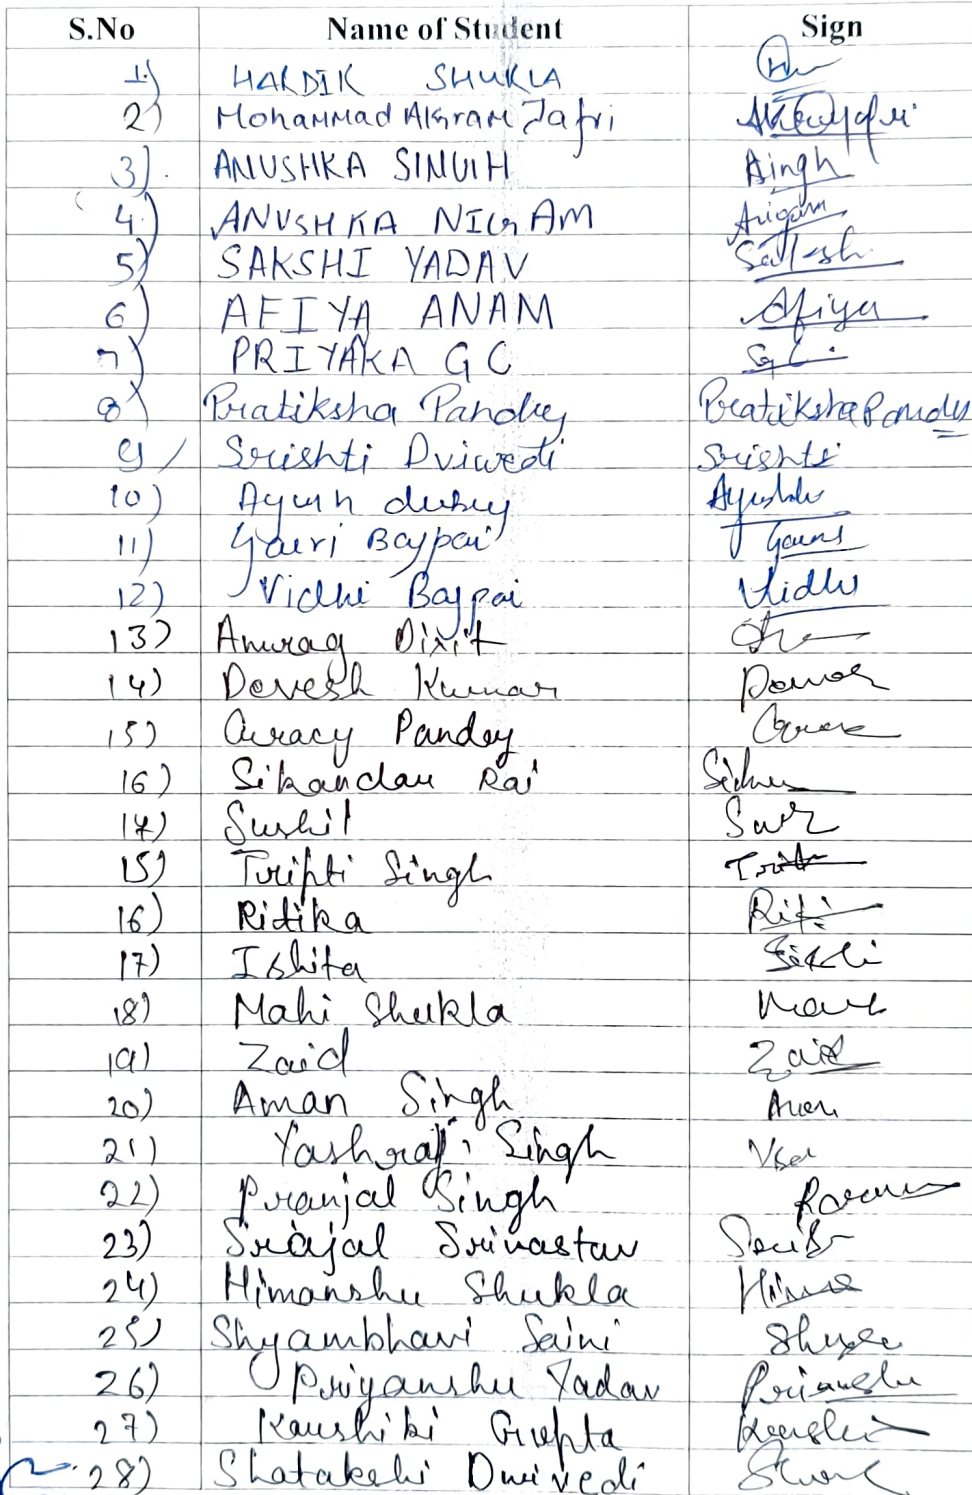 S.No Name of Student Sign
1) HARDIK SHUKLA
2) Mohammad Akram Jafri
3) ANUSHKA SINGH Asingh
4) ANUSHKA NIGAM Anigam
5) SAKSHI YADAV
6) AFIYA ANAM Afiya
7) PRIYAKA G C
8) Pratiksha Pandey Pratiksha Pandey
9) Srishti Dviwedi Srishti
10) Ayush dubey
11) Gauri Bajpai Gauri
12) Vidhi Bajpai Vidhi
13) Anurag Dixit
14) Devesh Kumar
15) Pandey
16) Sikandar Rai
17) Sushil
15) Tripti Singh
16) Ritika
17) Ishita
18) Mahi Shukla
19) Zaid Zaid
20) Aman Singh
21) Yashraj Singh
22) Pranjal Singh
23) Srajal Srivastav
24) Himanshu Shukla
25) Shyambhavi Saini
26) Priyanshu Yadav Prianshu
27) Kaushiki Gupta
28) Shatakshi Dwivedi